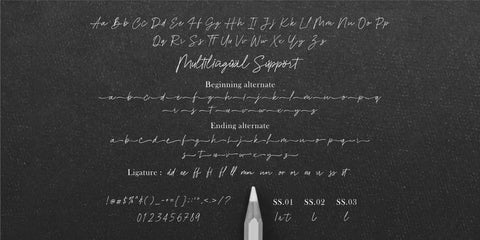 Aa Bb Cc Dd Ee Ff Gg Hh Ii Jj Kk Ll Mm Nn Oo Pp
Qq Rr Ss Tt Uu Vv Ww Xx Yy Zz
Multilingual Support
Beginning alternate
a b c d e f g h i j k l m n o p q
r s t u v w x y z
Ending alternate
a b c d e f g h i j k l m n o p q r
s t u v w x y z
Ligature : dd ee ff ft fl ll mm nn oo rr ss tt
0123456789
SS.01 SS.02 SS.03